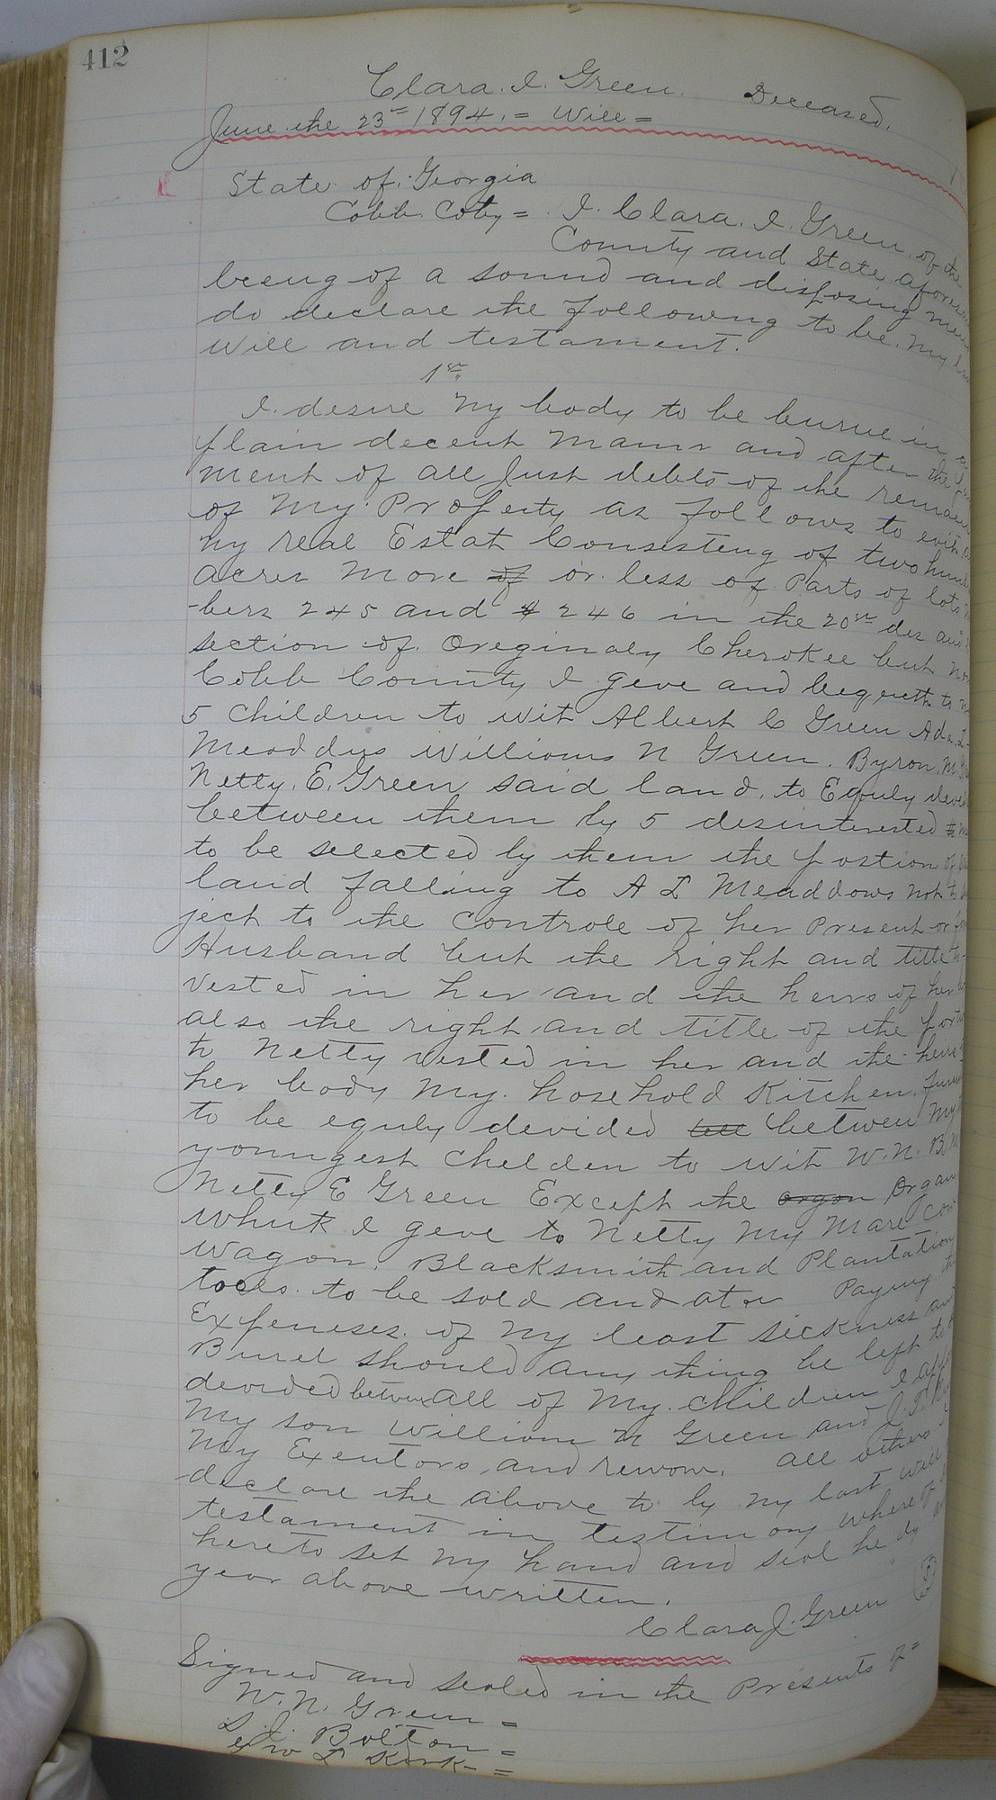 412
Clara. I. Green. Deceased.
June the 23rd 1894. = Will =
State of Georgia
Cobb Coty = I. Clara. I. Green. of the
County and State
being of a sound and disposing
do declare the following to be. My
will and testament.
1st
I. desire my body to be burue in
plain decent Manr and after the
ment of all Just debts of the
of My Property as follows to
my real Estat Consisteng of two
acres More of or less of Parts of lots
-bers 245 and 246 in the 20th des and
section of. Oreginaly Cherokee but
Cobb County I geve and beqeeth to
5 Children to wit Albert C Green Ada. I-
Meaddus Williams N Green. Byron. M
Netty. E. Green said land. to Equly
between them by 5 desinterested
to be selected by them the portion of
land falling to A I Meaddows not to
ject to the controle of her Present or
Husband but the right and title
vested in her and the heirs of her
also the right and title of the
to Netty vested in her and the heirs
her body My. hosehold Kitchen.
to be equly devided between My
youngest Chelden to wit W. N. B.
Netty E Green Except the organ Organ
Which I geve to Netty My Mare Cow
Wagon. Blacksmith and Plantation
tools. to be sold and atr Paying
Expeneses. of My least sickness and
Burel should any thing be left to
devided betwen all of My. Children I
My son William N Green and J.
My Exentors and revow. all others
declare the above to by my last will
testament in testimony where of
hereto set my hand and seal he dy
year above written.
Clara J. Green
Signed and sealed in the Presents of =
W. N. Green =
S. J. Bolton =
Geo I Kirk =